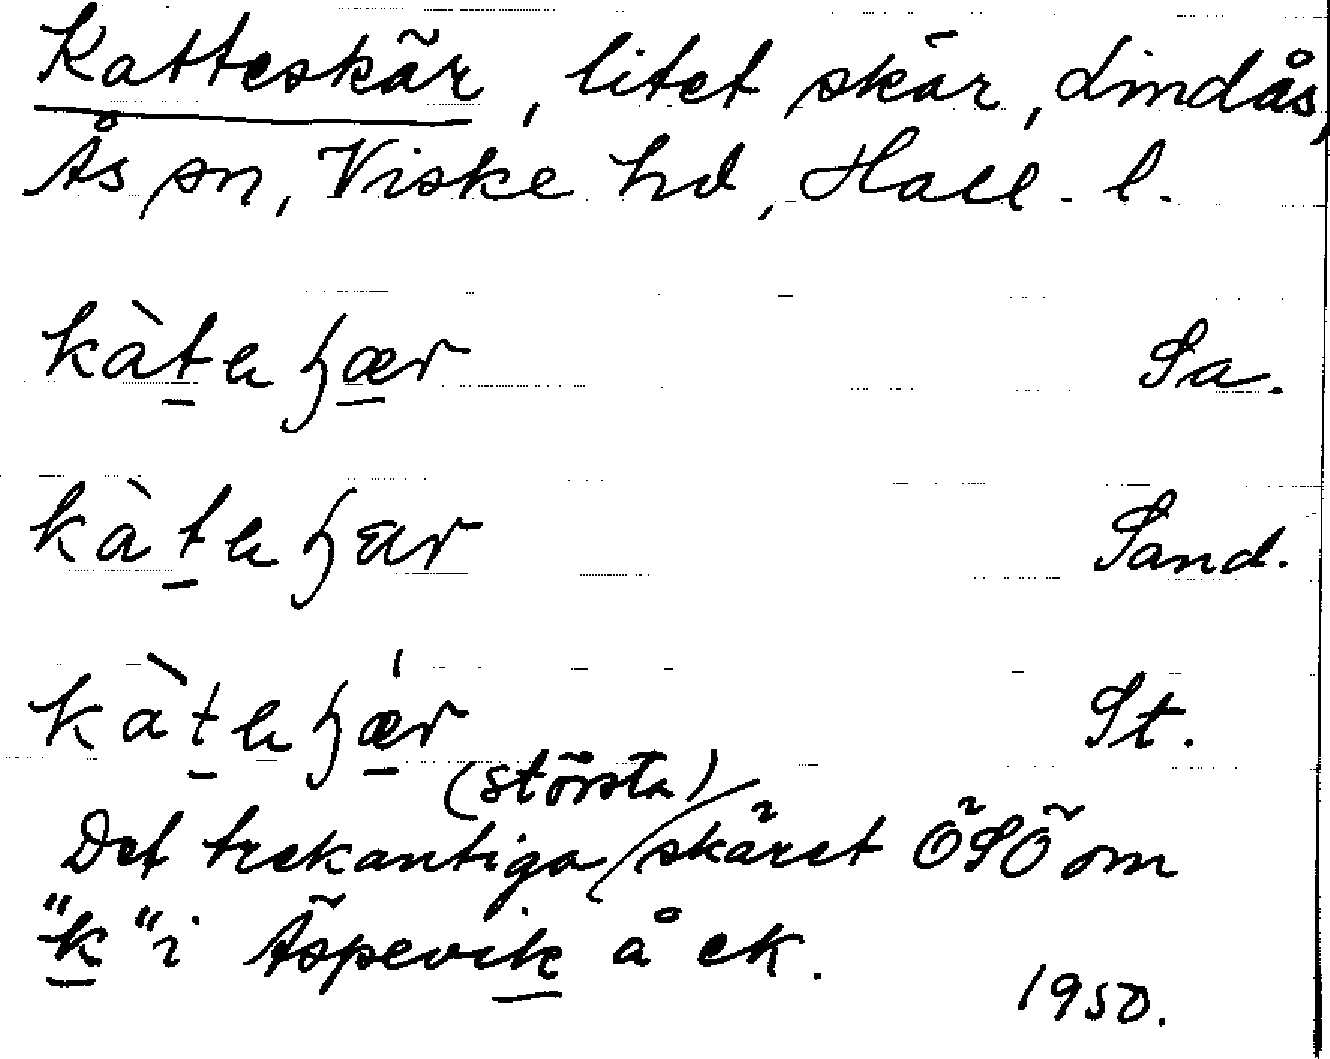 Katteskär, litet skär, Lindås,
Ås sn, Viske hd, Hall. l.
kàteɧær Sa.
kàteɧær Sand.
kàteɧǽr St.
(största)
Det trekantiga skäret ÖSÖ om
"k" i Äspevik å ek.
1950.